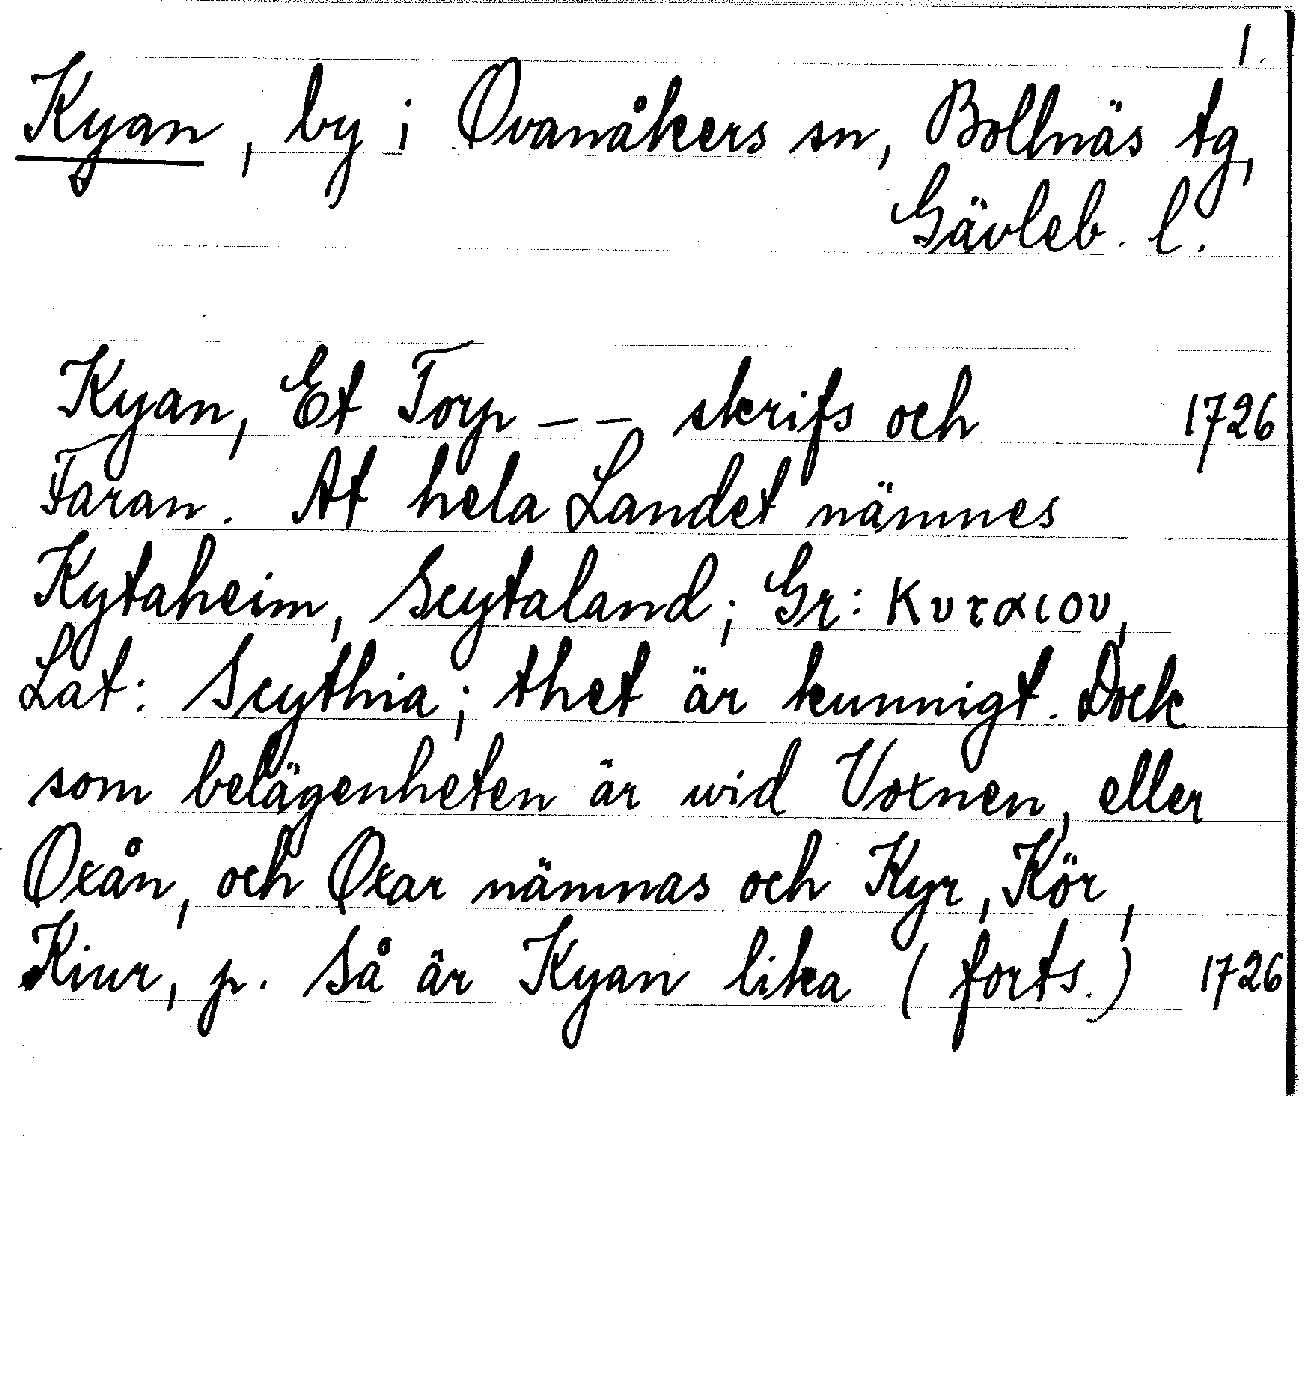 1.
Kyan, by i Ovanåkers sn, Bollnäs tg,
Gävleb. l.
Kyan, Et Torp – – skrifs och 1726
Faran. At hela Landet nämnes
Kytaheim, Scytaland; Gr: κυταιου,
Lat: Scythia; thet är kunnigt. Dock
som belägenheten är wid Voxnen, eller
Oxån, och Oxar nämnas och Kyr, Kör,
Kiur, p. Så är Kyan lika (forts.) 1726